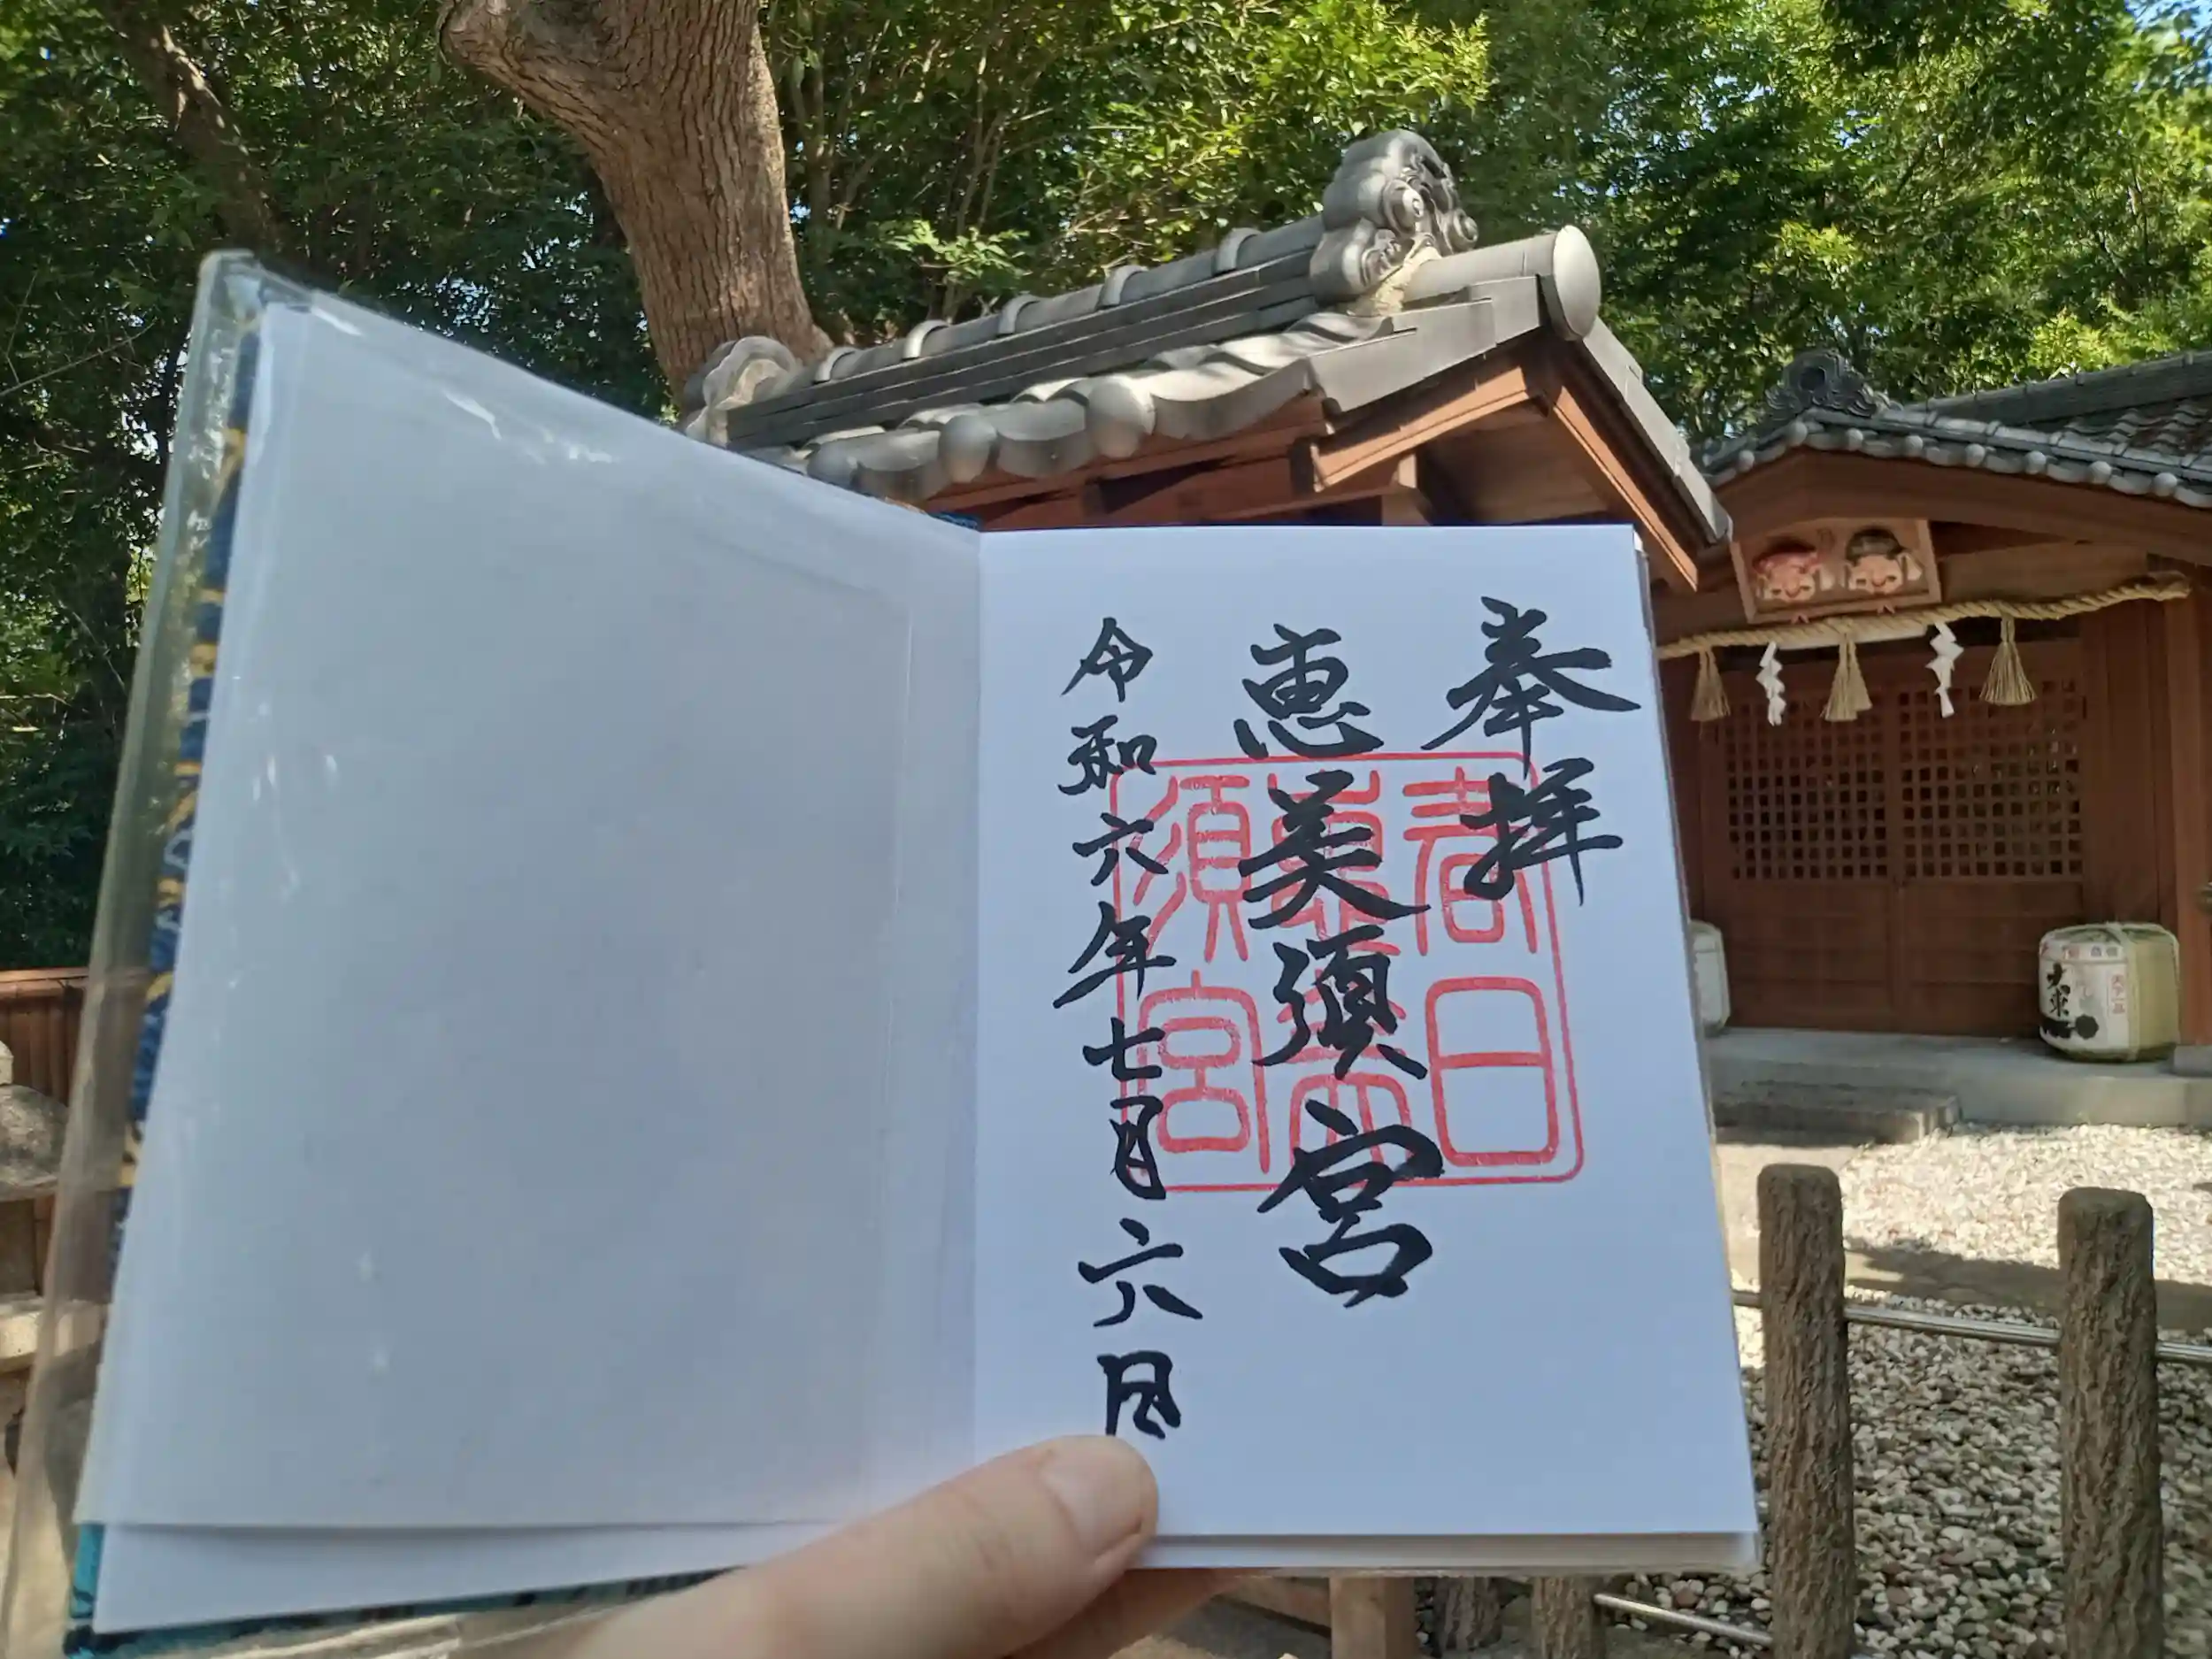 奉拝
恵美須宮
令和六年七月六日
春日
恵美
須宮